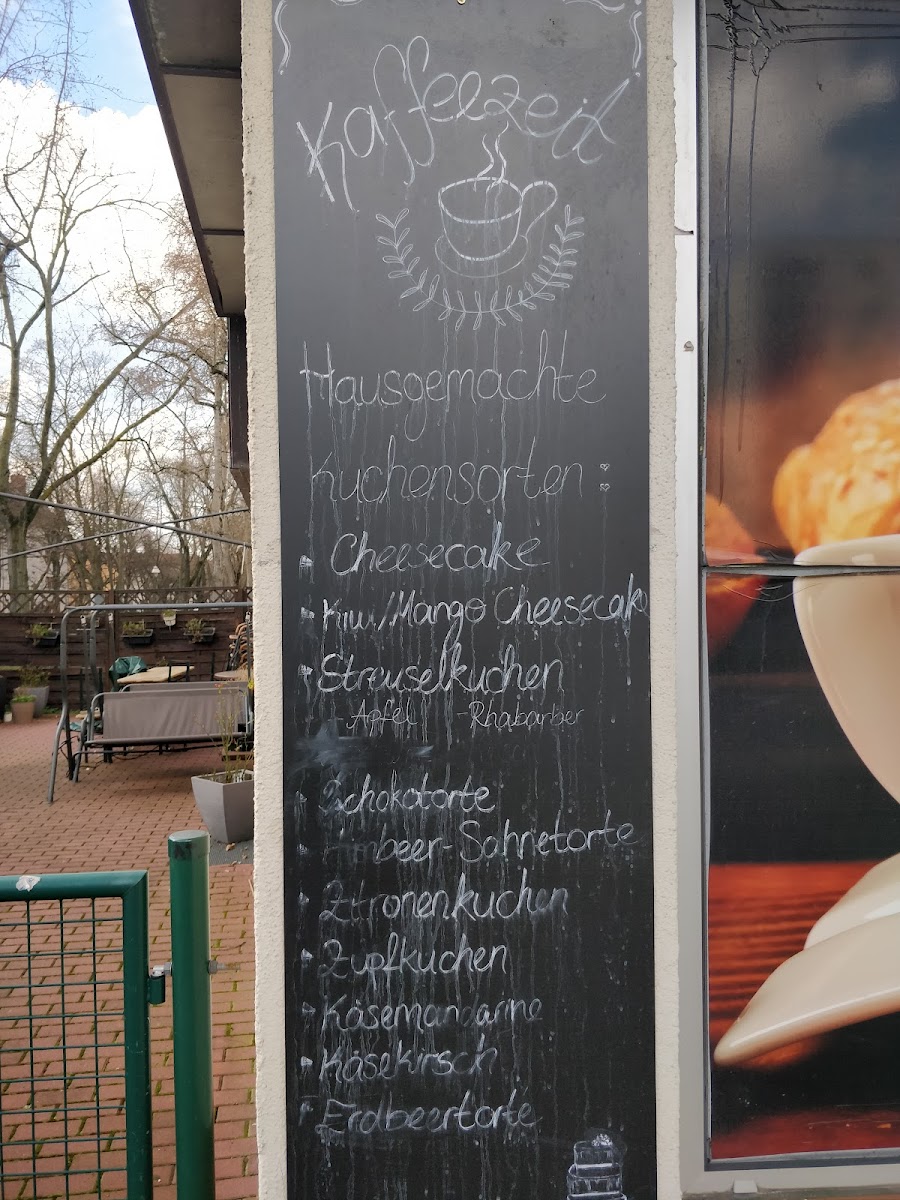 Kaffeezeit
Hausgemachte
Kuchensorten:
Cheesecake
Kiwi/Mango Cheesecake
Streuselkuchen
- Apfel - Rhabarber
Schokotorte
Himbeer-Sahnetorte
Zitronenkuchen
Zupfkuchen
Käsemandarine
Käsekirsch
Erdbeertorte